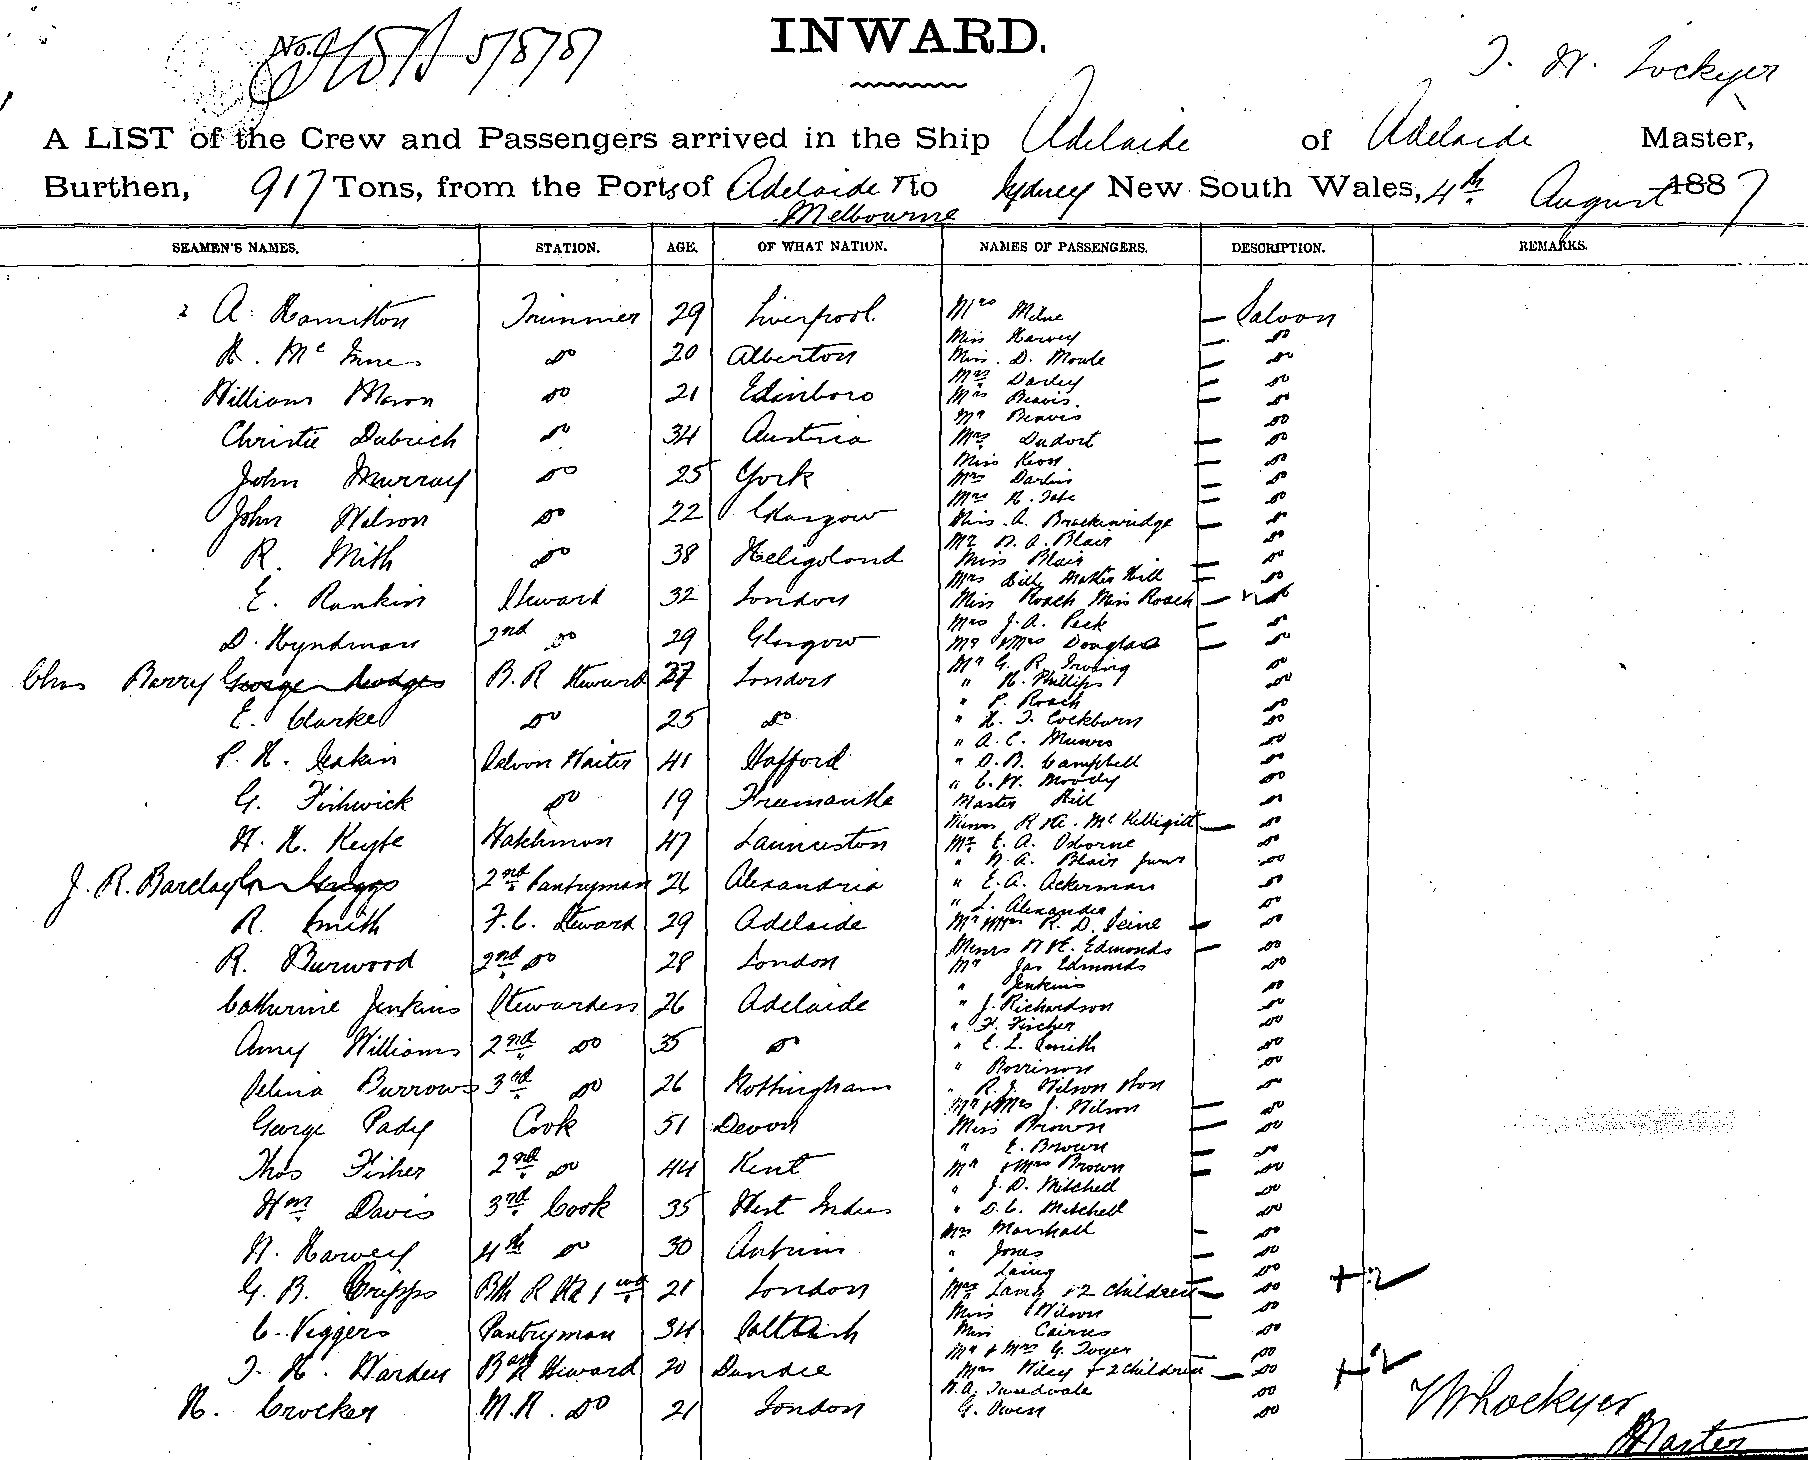 INWARD.
No. 5/8/87
T. W. Lockyer
A LIST of the Crew and Passengers arrived in the Ship Adelaide of Adelaide Master,
Burthen, 917 Tons, from the Ports of Adelaide & to Sydney New South Wales, 4th August 1887
Melbourne
SEAMEN'S NAMES. STATION. AGE. OF WHAT NATION. NAMES OF PASSENGERS. DESCRIPTION. REMARKS.
A. Hamilton Trimmer 29 Liverpool
H. McInnes do 20 Alberton
William Mason do 21 Edinboro
Christie Dubrich do 34 Austria
John Murray do 25 York
John Wilson do 22 Glasgow
R. Mith do 38 Heligoland
E. Rankin Steward 32 London
D. Hyndman 2nd do 29 Glasgow
Chas Barry George Hodges B. R Steward 27 London
E. Clarke do 25 do
P. H. Deakin Saloon Waiter 41 Stafford
G. Fishwick do 19 Freemantle
H. H. Keyte Watchman 47 Launceston
J. R. Barclay Griggs 2nd Pantryman 26 Alexandria
R. Smith F. C. Steward 29 Adelaide
R. Burwood 2nd do 28 London
Catherine Jenkins Stewardess 26 Adelaide
Amy Williams 2nd do 35 do
Selina Burrows 3rd do 26 Nottingham
George Pady Cook 51 Devon
Thos Fisher 2nd do 44 Kent
Wm Davis 3rd Cook 35 West Indies
W. Harvey 4th do 30 Antrim
G. B. Cripps 21 London
C. Viggers Pantryman 34 Saltash
T. H. Warden Steward 20 Dundee
H. Crocker M. R. do 21 London
Mrs Milne Saloon
Miss Harvey do
Miss D. Moule do
Mrs Darley do
Mrs Beavis do
Mr Beavis do
Mrs Dudort do
Miss Keon do
Mrs Darlin do
Mrs H. Tate do
Miss A. Brackinridge do
Mr W. A. Blair do
Miss Blair do
Mrs Hill Master Hill do
Miss Roach Miss Roach do
Mrs J. A. Peck do
Mr & Mrs Douglas do
Mr G. R. Irving do
" H. Phillips do
" P. Roach do
" H. T. Cockburn do
" A. C. Munro do
" D. B. Campbell do
" C. W. Moody do
Master Hill do
McKelligitt do
Mr E. A. Osborne do
" W. A. Blair Junr do
" E. A. Ackerman do
" L. Alexander do
Mr & Mrs R. D. Peine do
Edmonds do
Mr Jas Edmonds do
" Jenkins do
" J. Richardson do
" F. Fischer do
" E. L. Smith do
" Borrinon do
" R. J. Wilson Hon do
Mr & Mrs J. Wilson do
Miss Brown do
" E. Brown do
Mr & Mrs Brown do
" J. D. Mitchell do
" D. C. Mitchell do
Mrs Marshall do
" Jones do
" Laing do
Mrs Lang & 2 Children do + 2
Miss Wilson do
Miss Cairns do
Mr & Mrs G. Toyer do
Mrs Wiley & 2 Children do + 2
W. A. Tweedvale do
G. Owen do
T W Lockyer
Master